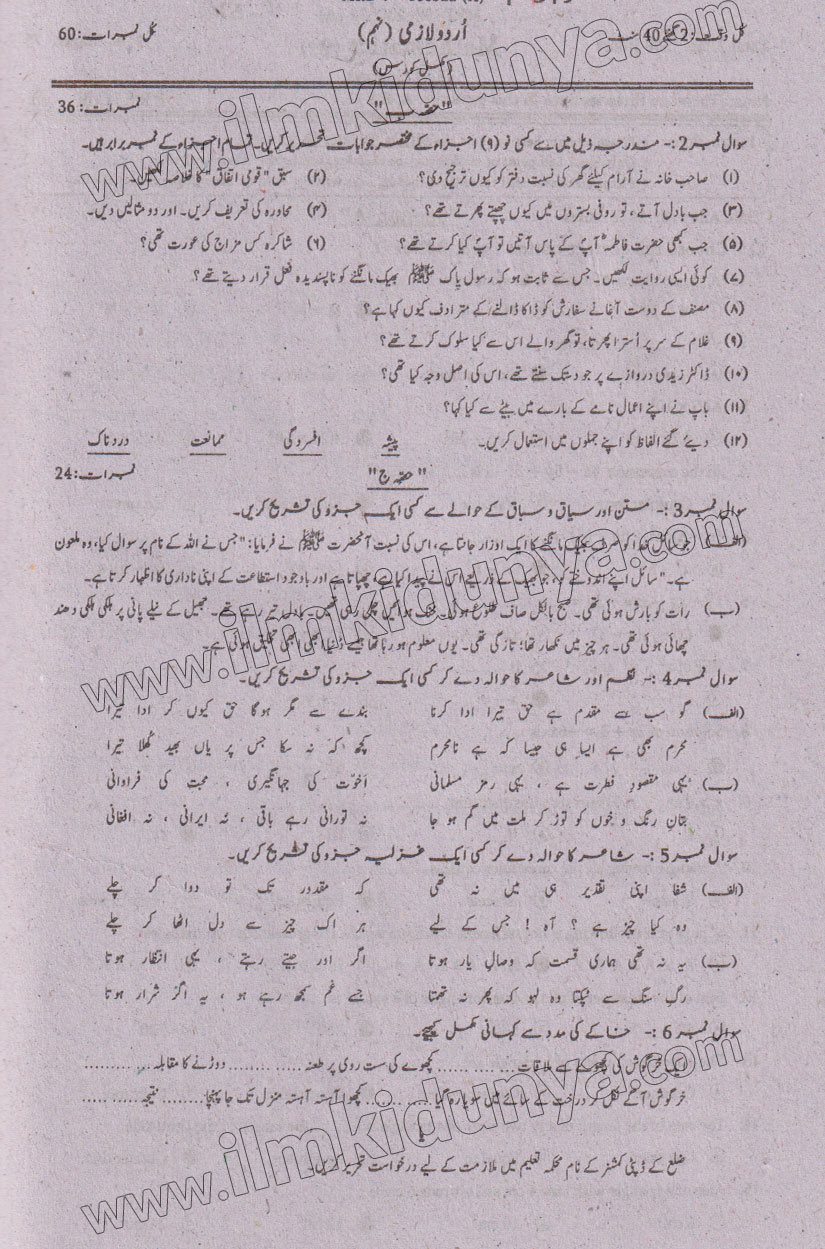 کل وقت: 2 گھنٹے 40 منٹ اُردو لازمی (نہم) کل نمبرات: 60
(مکمل کورس)
"حصہ ب" نمبرات: 36
سوال نمبر 2 :- مندرجہ ذیل میں سے کسی نو (۹) اجزاء کے مختصر جوابات تحریر کریں۔ تمام اجزاء کے نمبر برابر ہیں۔
(۱) صاحب خانہ نے آرام کیلئے گھر کی نسبت دفتر کو کیوں ترجیح دی؟ (۲) سبق "قومی اتفاق" کا خلاصہ لکھیں۔
(۳) جب بادل آتے، تو روفی بستروں میں کیوں چھپتے پھرتے تھے؟ (۴) محاورہ کی تعریف کریں۔ اور دو مثالیں دیں۔
(۵) جب کبھی حضرت فاطمہؓ آپؐ کے پاس آتیں تو آپؐ کیا کرتے تھے؟ (۶) شاکرہ کس مزاج کی عورت تھی؟
(۷) کوئی ایسی روایت لکھیں۔ جس سے ثابت ہو کہ رسول پاک ﷺ بھیک مانگنے کو ناپسندیدہ فعل قرار دیتے تھے؟
(۸) مصنف کے دوست آغا نے سفارش کو ڈاکا ڈالنے کے مترادف کیوں کہا ہے؟
(۹) غلام کے سر پر اُسترا پھرتا، تو گھر والے اس سے کیا سلوک کرتے تھے؟
(۱۰) ڈاکٹر زیدی دروازے پر جو دستک سنتے تھے، اس کی اصل وجہ کیا تھی؟
(۱۱) باپ نے اپنے اعمال نامے کے بارے میں بیٹے سے کیا کہا؟
(۱۲) دیئے گئے الفاظ کو اپنے جملوں میں استعمال کریں۔ پیشہ افسردگی ممانعت دردناک
"حصہ ج" نمبرات: 24
سوال نمبر 3 :- متن اور سیاق و سباق کے حوالے سے کسی ایک جزو کی تشریح کریں۔
(الف) جو سائل خدا کو صرف بھیک مانگنے کا ایک اوزار جانتا ہے، اس کی نسبت آنحضرت ﷺ نے فرمایا: "جس نے اللہ کے نام پر سوال کیا، وہ ملعون
ہے۔" سائل اپنے اندوختے کو، جو بھیک کے ذریعے اس نے پیدا کیا ہے، چھپاتا ہے اور باوجود استطاعت کے اپنی ناداری کا اظہار کرتا ہے۔
(ب) رات کو بارش ہوئی تھی۔ صبح بالکل صاف طلوع ہوئی۔ خنک ہوائیں چل رہی تھیں۔ بادل تیر رہے تھے۔ جھیل کے نیلے پانی پر ہلکی ہلکی دھند
چھائی ہوئی تھی۔ ہر چیز میں نکھار تھا؛ تازگی تھی۔ یوں معلوم ہو رہا تھا جیسے دُنیا ابھی ابھی تخلیق ہوئی ہے۔
سوال نمبر 4 :- نظم اور شاعر کا حوالہ دے کر کسی ایک جزو کی تشریح کریں۔
(الف) گو سب سے مقدم ہے حق تیرا ادا کرنا بندے سے مگر ہوگا حق کیوں کر ادا تیرا
محرم بھی ہے ایسا ہی جیسا کہ ہے نامحرم کچھ کہہ نہ سکا جس پر یاں بھید کُھلا تیرا
(ب) یہی مقصودِ فطرت ہے ، یہی رمزِ مسلمانی اُخوّت کی جہانگیری ، محبت کی فراوانی
بتانِ رنگ و خوں کو توڑ کر ملت میں گم ہو جا نہ تورانی رہے باقی ، نہ ایرانی ، نہ افغانی
سوال نمبر 5 :- شاعر کا حوالہ دے کر کسی ایک غزلیہ جزو کی تشریح کریں۔
(الف) شفا اپنی تقدیر ہی میں نہ تھی کہ مقدور تک تو دوا کر چلے
وہ کیا چیز ہے ؟ آہ ! جس کے لیے ہر اک چیز سے دل اٹھا کر چلے
(ب) یہ نہ تھی ہماری قسمت کہ وصالِ یار ہوتا اگر اور جیتے رہتے ، یہی انتظار ہوتا
رگِ سنگ سے ٹپکتا وہ لہو کہ پھر نہ تھمتا جسے غم سمجھ رہے ہو ، یہ اگر شرار ہوتا
سوال نمبر 6 :- خاکے کی مدد سے کہانی مکمل کیجیے۔
ایک خرگوش کی کچھوے سے ملاقات ............ کچھوے کی سست روی پر طعنہ ............ دوڑنے کا مقابلہ ............
خرگوش آگے نکل کر درخت کے سائے میں سو پارہ گیا ............ کچھوا آہستہ آہستہ منزل تک جا پہنچا ........ نتیجہ ..........
یا
ضلع کے ڈپٹی کمشنر کے نام محکمہ تعلیم میں ملازمت کے لیے درخواست تحریر کریں۔
www.ilmkidunya.com
www.ilmkidunya.com
www.ilmkidunya.com